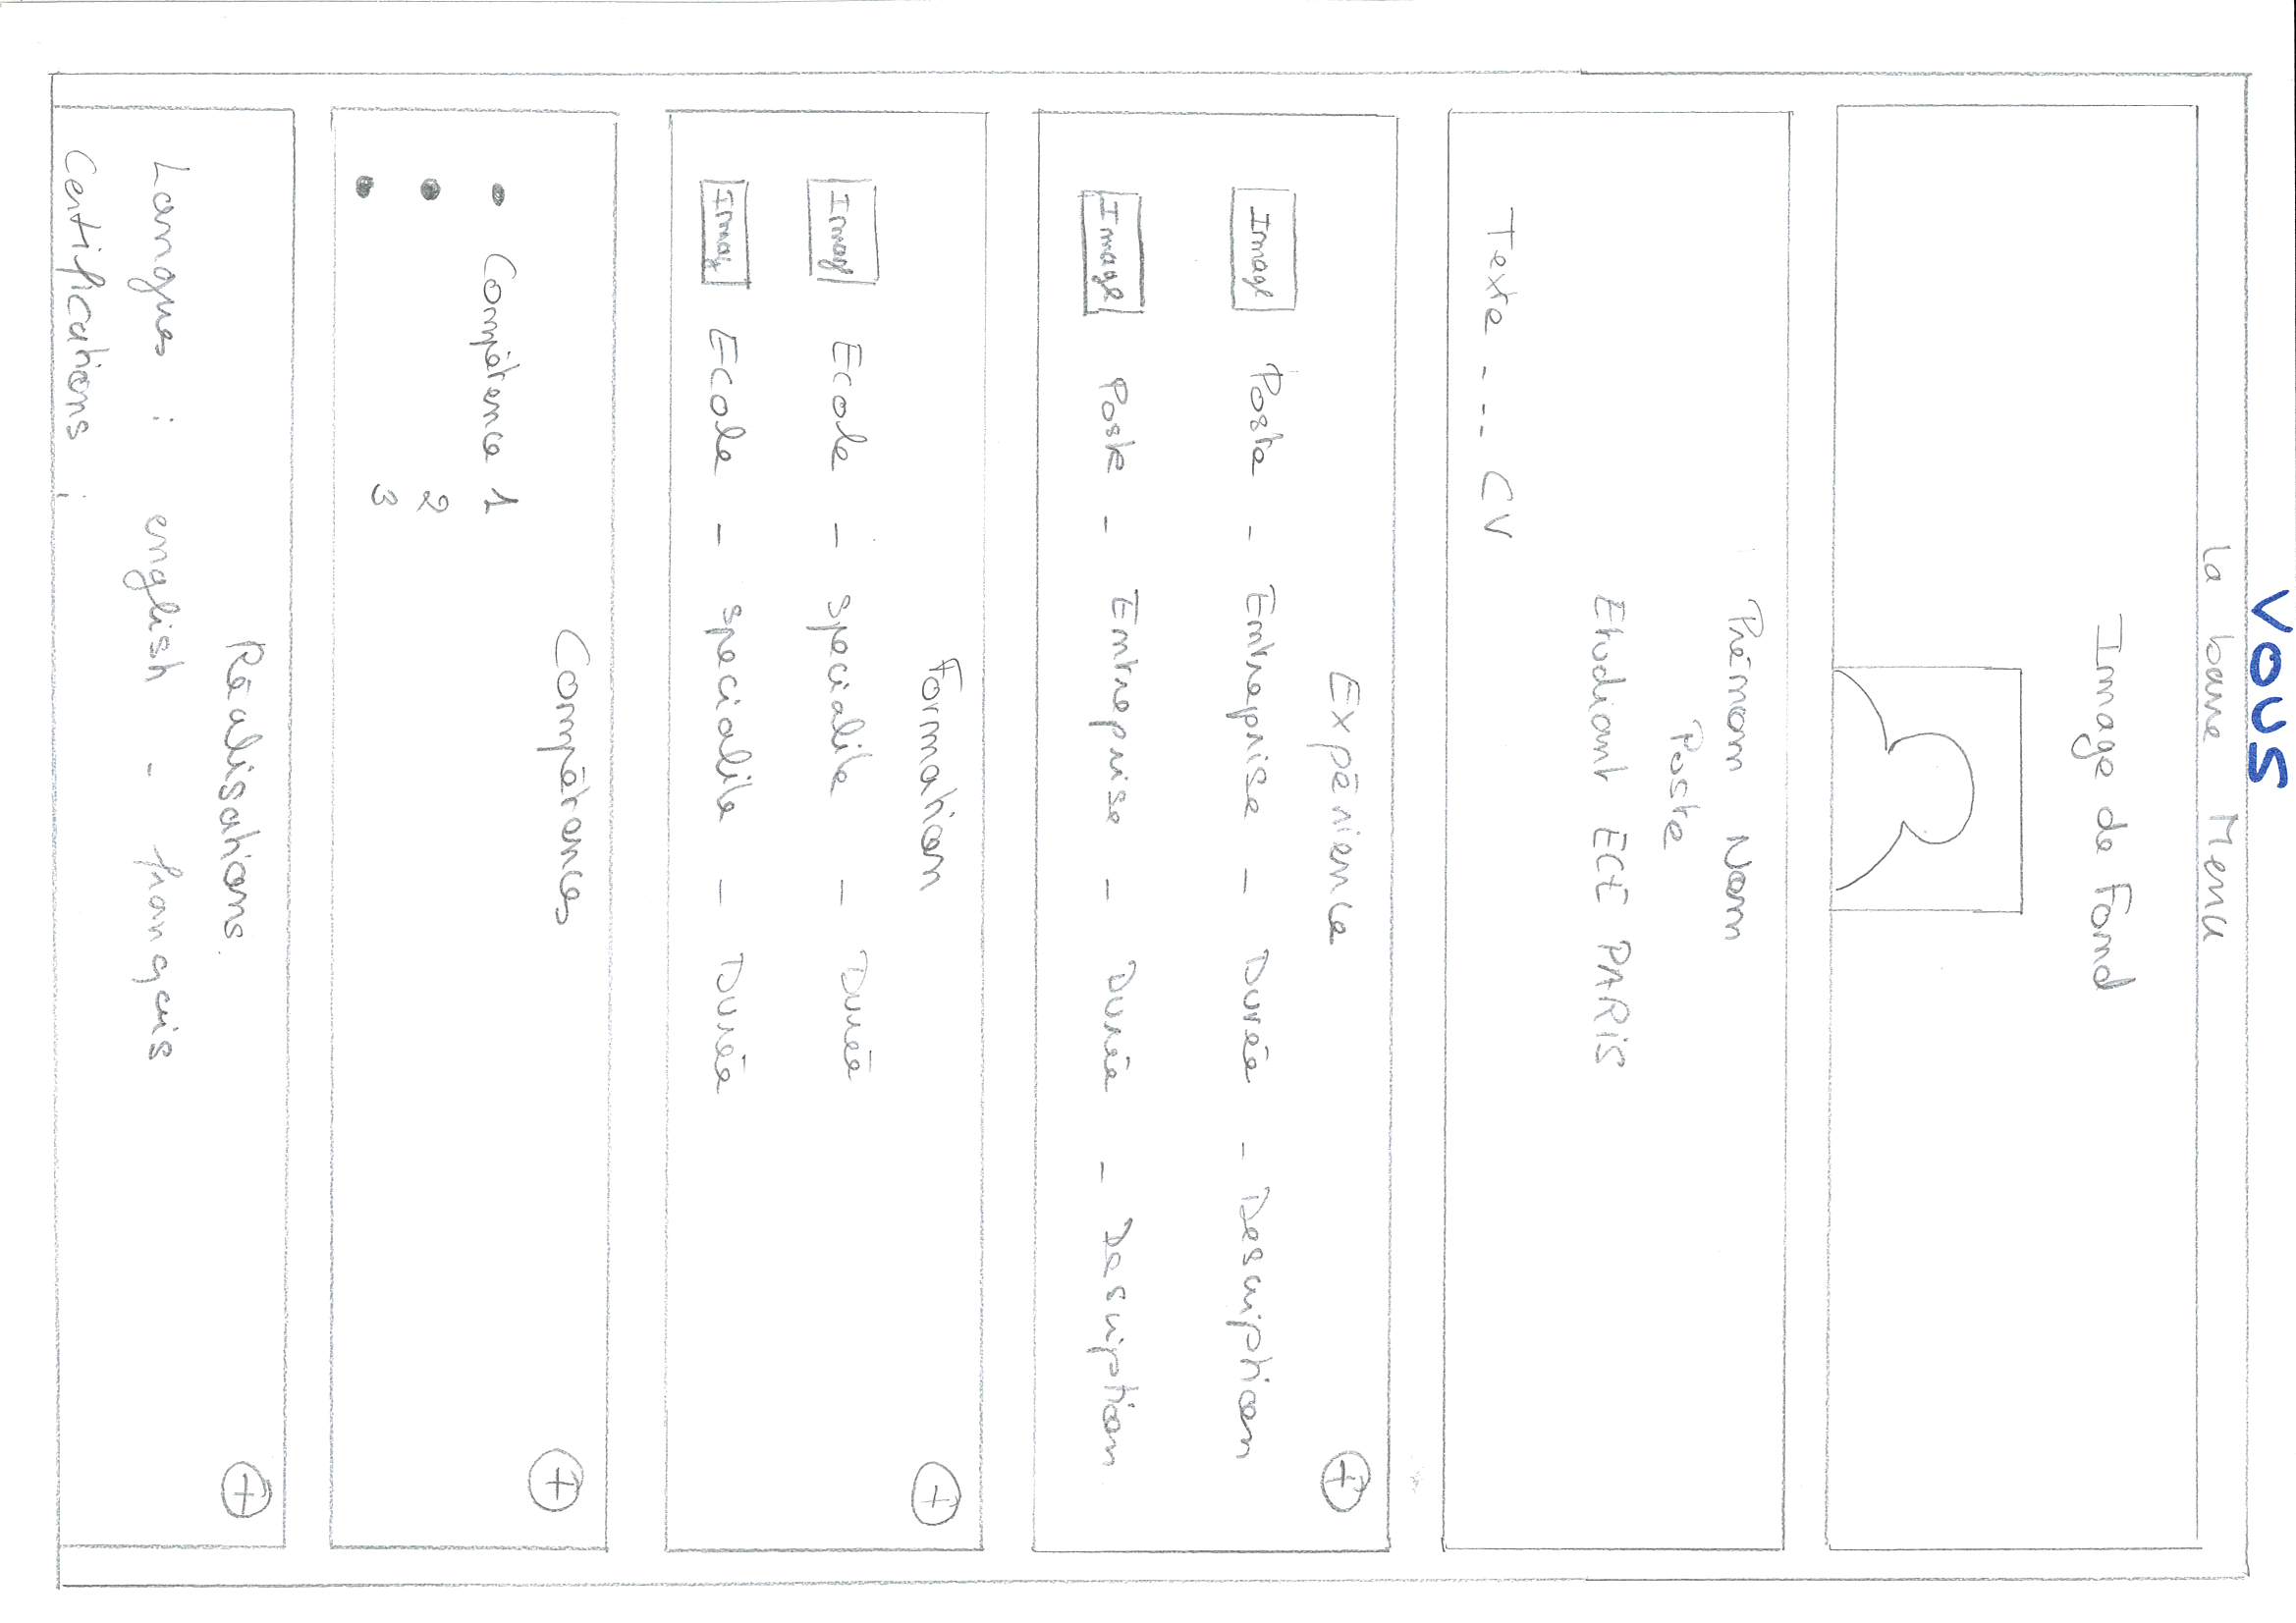 VOUS
La barre Menu
Image de Fond
Prénom Nom
Poste
Etudiant ECE PARIS
Texte _ _ _ CV
Expérience +
Image Poste - Entreprise - Durée - Description
Image Poste - Entreprise - Durée - Description
Formation +
Imag Ecole - specialite - Durée
Imag Ecole - specialite - Durée
Compétences +
• Compétence 1
• 2
• 3
Réalisations +
Langues : english - français
Certifications :